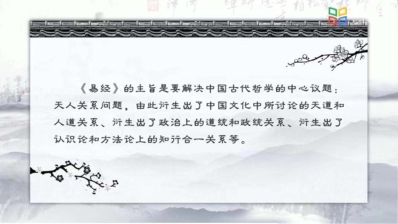 《易经》的主旨是要解决中国古代哲学的中心议题：
天人关系问题，由此衍生出了中国文化中所讨论的天道和
人道关系、衍生出了政治上的道统和政统关系、衍生出了
认识论和方法论上的知行合一关系等。